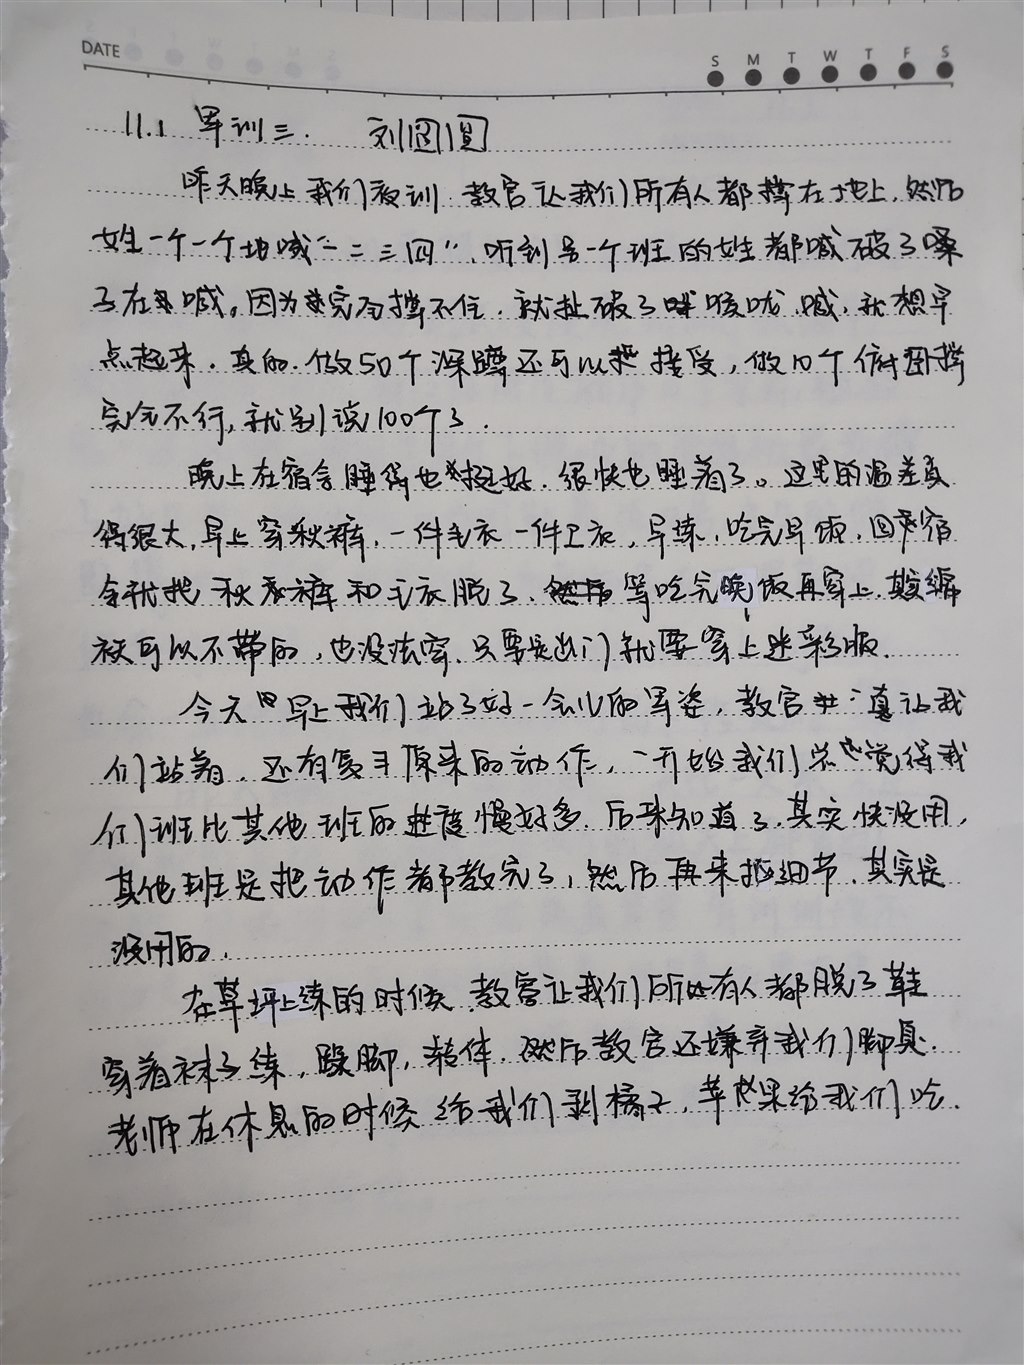 DATE
S M T W T F S
11.1 军训三. 刘圆圆
昨天晚上我们夜训.教官让我们所有人都撑在地上,然后
女生一个一个地喊“一二三四”,听到另一个班的女生都喊破了嗓
子在喊。因为完全撑不住.就扯破了喉咙喊,就想早
点起来.真的.做50个深蹲还可以接受,做10个俯卧撑
完全不行,就别说100个了.
晚上在宿舍睡得也挺好.很快也睡着了。这里的温差真
得很大,早上穿秋裤,一件毛衣一件卫衣,早练,吃完早饭,回宿
舍就把秋裤和毛衣脱了.等吃完晚饭再穿上.
袄可以不带的,也没法穿.只要是出门就要穿上迷彩服.
今天早上我们站了好一会儿的军姿,教官一直让我
们站着.还有复习原来的动作,一开始我们总觉得我
们班比其他班的进度慢好多.后来知道了.其实快没用,
其他班是把动作都教完了,然后再来抠细节.其实是
没用的.
在草坪上练的时候.教官让我们所有人都脱了鞋
穿着袜子练,跺脚,转体.然后教官还嫌弃我们脚臭.
老师在休息的时候给我们剥橘子,苹果给我们吃.